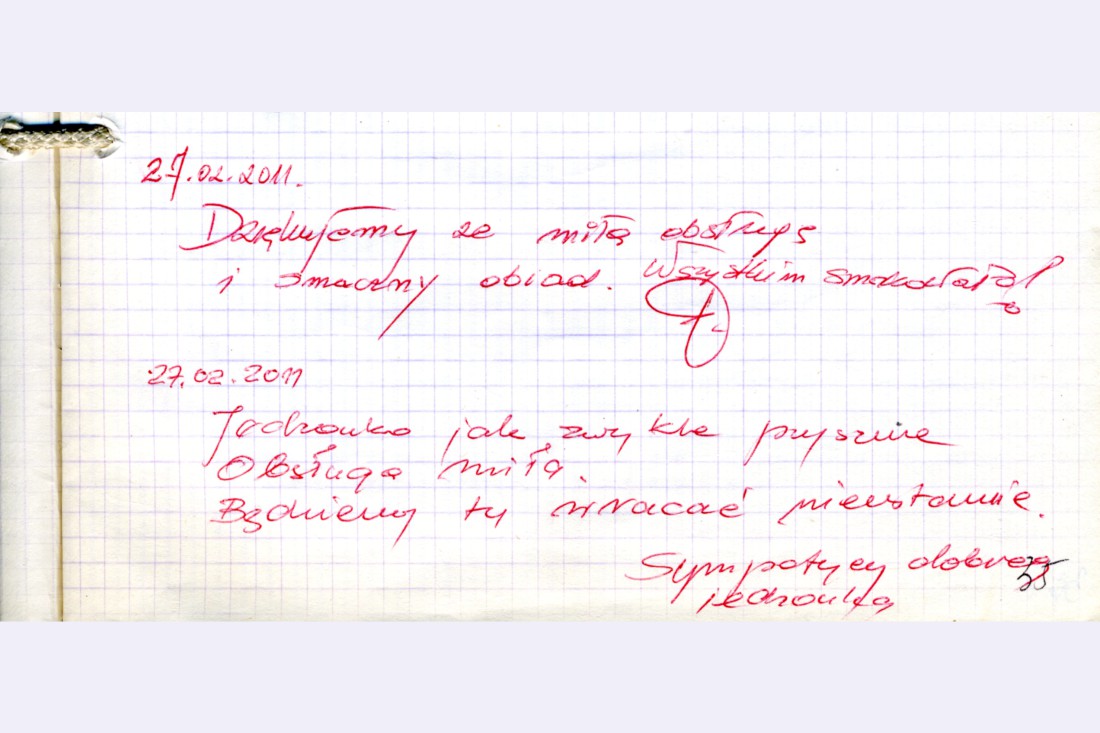 27.02.2011.
Dziękujemy za miłą obsługę
i smaczny obiad. Wszystkim
27.02.2011
Jedzonko jak zwykle pyszne
Obsługa miła.
Będziemy tu wracać nieustannie.
Sympatycy dobrego
jedzonka
35